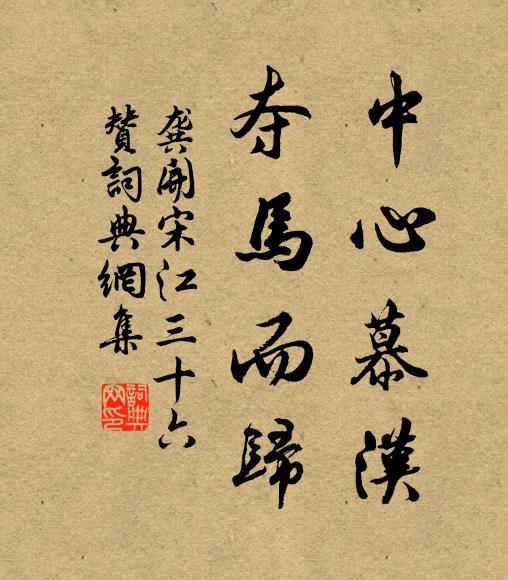 中心慕漢
夺馬而歸
龚開宋江三十六
贊詞典網集
詞典网印